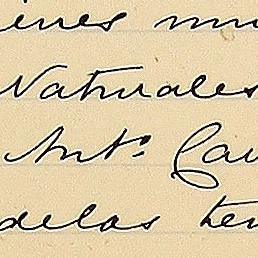 ienes mu
Naturales
Ant.º Cav
delas ten